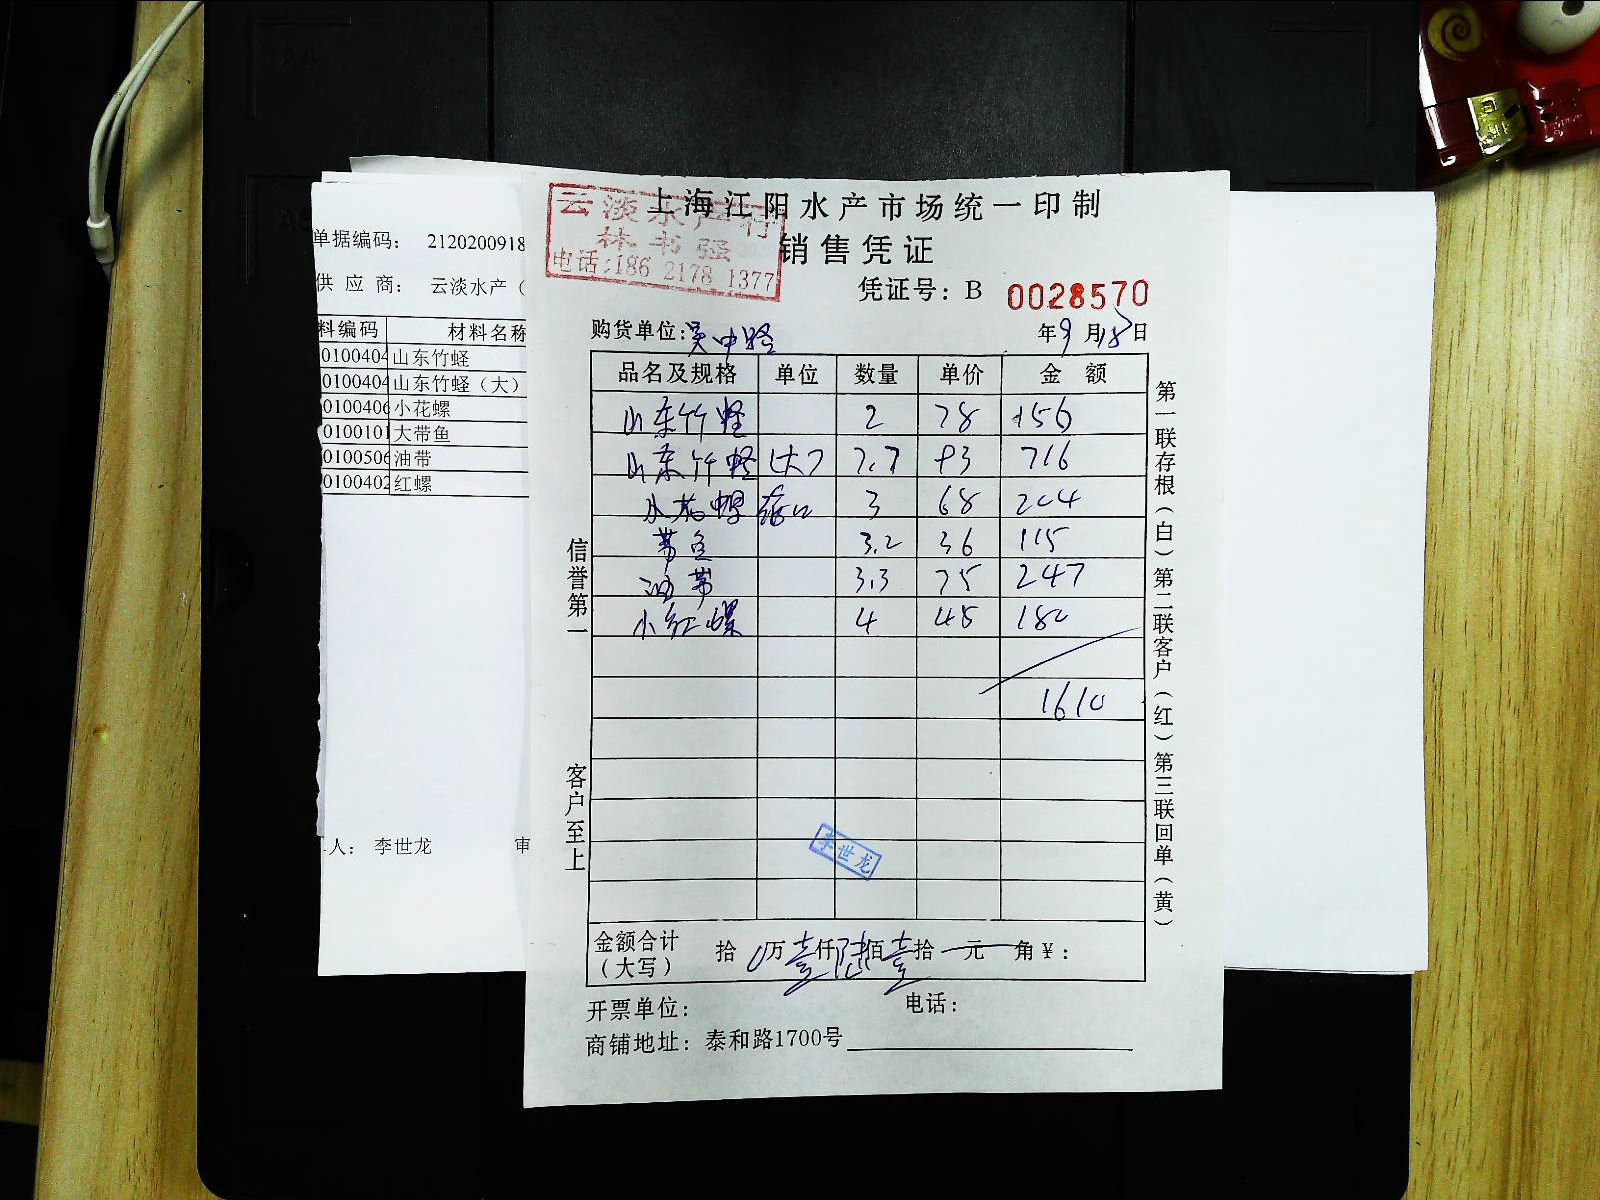 上海江阳水产市场统一印制
销售凭证
云淡水产行
林书强
电话:186 2178 1377
凭证号: B 0028570
购货单位: 吴中路
年9月18日
品名及规格 单位 数量 单价 金额
山东竹蛏 2 78 156
山东竹蛏(大) 7.7 93 716
小花螺 3 68 204
带鱼 3.2 36 115
油带 3.3 75 247
小红螺 4 45 180
1610
李世龙
金额合计(大写) 拾 0万壹仟陆佰壹拾 元 角¥:
开票单位: 电话:
商铺地址: 泰和路1700号
信誉第一
客户至上
第一联存根(白) 第二联客户(红) 第三联回单(黄)
单据编码: 2120200918
供应商: 云淡水产(
料编码 材料名称
0100404 山东竹蛏
0100404 山东竹蛏(大)
0100406 小花螺
0100101 大带鱼
0100506 油带
0100402 红螺
人: 李世龙 审